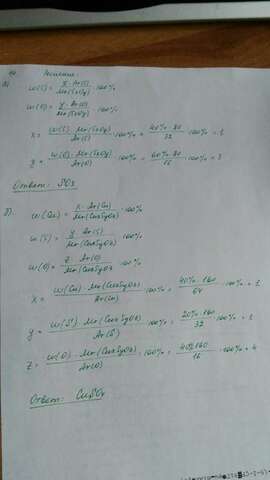 Решение:
а)
w(S) = x · Ar(S) / Mr(SxOy) · 100%
w(O) = y · Ar(O) / Mr(SxOy) · 100%
x = w(S) · Mr(SxOy) / Ar(S) · 100% = 40% · 80 / 32 · 100% = 1
y = w(O) · Mr(SxOy) / Ar(O) · 100% = 60% · 80 / 16 · 100% = 3
Ответ: SO₃
w(Cu) = x · Ar(Cu) / Mr(CuxSyOz) · 100%
w(S) = y · Ar(S) / Mr(CuxSyOz) · 100%
w(O) = z · Ar(O) / Mr(CuxSyOz) · 100%
x = w(Cu) · Mr(CuxSyOz) / Ar(Cu) · 100% = 40% · 160 / 64 · 100% = 1
y = w(S) · Mr(CuxSyOz) / Ar(S) · 100% = 20% · 160 / 32 · 100% = 1
z = w(O) · Mr(CuxSyOz) · 100% / Ar(O) = 40% 160 / 16 · 100% = 4
Ответ: CuSO₄